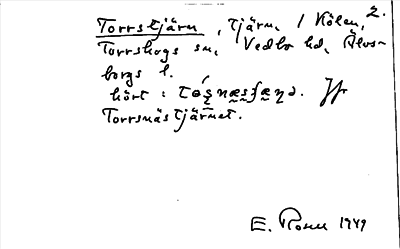 2.
Torrstjärn, tjärn, i Kölen,
Torrskogs sn, Vedbo hd, Älvs-
borgs l.
hört: 
Jfr
Torrsnästjärnet.
E. Rosn 1949